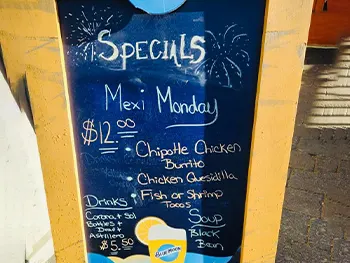 Specials
Mexi Monday
$12.00
• Chipotle Chicken
Burrito
• Chicken Quesidilla
• Fish or Shrimp
Tacos
Drinks
Corona + Sol
Bottles +
Draft +
Astillero
$5.50
Soup
Black
Bean
Blue Moon